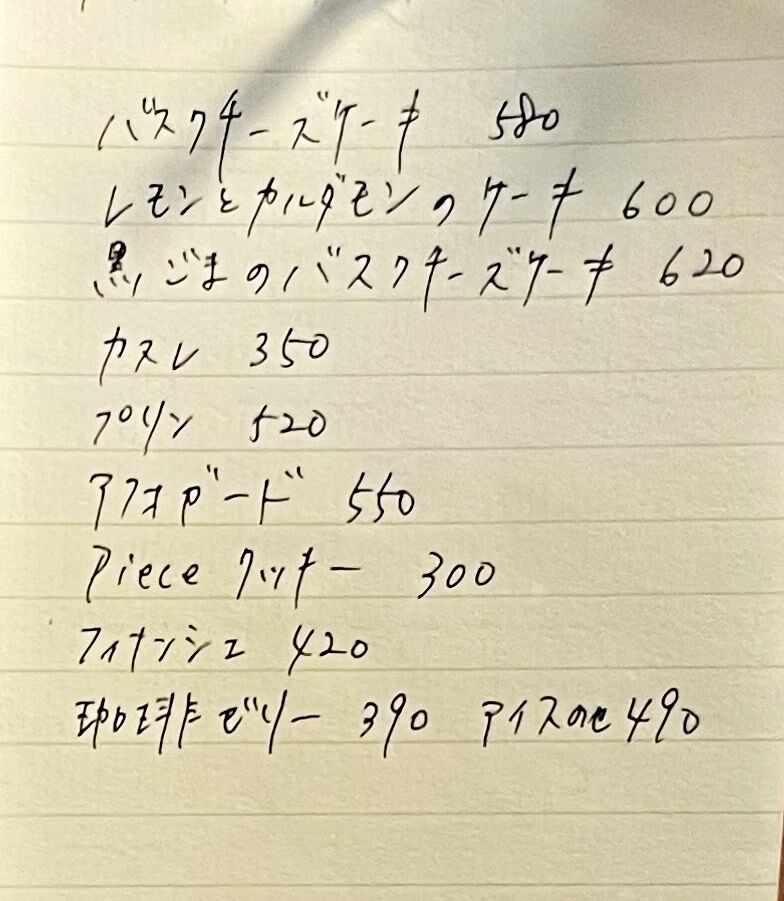 バスクチーズケーキ 580
レモンとカルダモンのケーキ 600
黒ごまのバスクチーズケーキ 620
カヌレ 350
プリン 520
アフォガード 550
Piece クッキー 300
フィナンシェ 420
珈琲ゼリー 390 アイスのせ 490